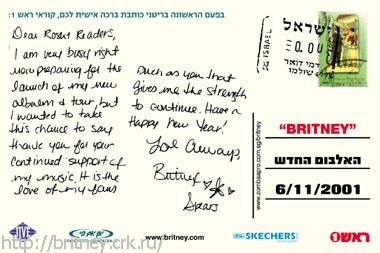 בפעם הראשונה בריטני כותבת ברכה אישית לכם, קוראי ראש 1:
Dear Rosh1 Readers,
I am very busy right
now preparing for the
launch of my new
album & tour, but
I wanted to take
this chance to say
thank you for your
continued support of
my music. It is the
love of my fans
such as you that
gives me the strength
to continue. Have a
Happy New Year!
Love Always,
Britney
Spears
ישראל
0.00
ISRAEL
דמי דואר
שולמו
www.zombaapro.com.sg/britney
"BRITNEY"
האלבום החדש
6/11/2001
JIVE
www.britney.com
SKECHERS
ראש1
http://britney.crk.ru/